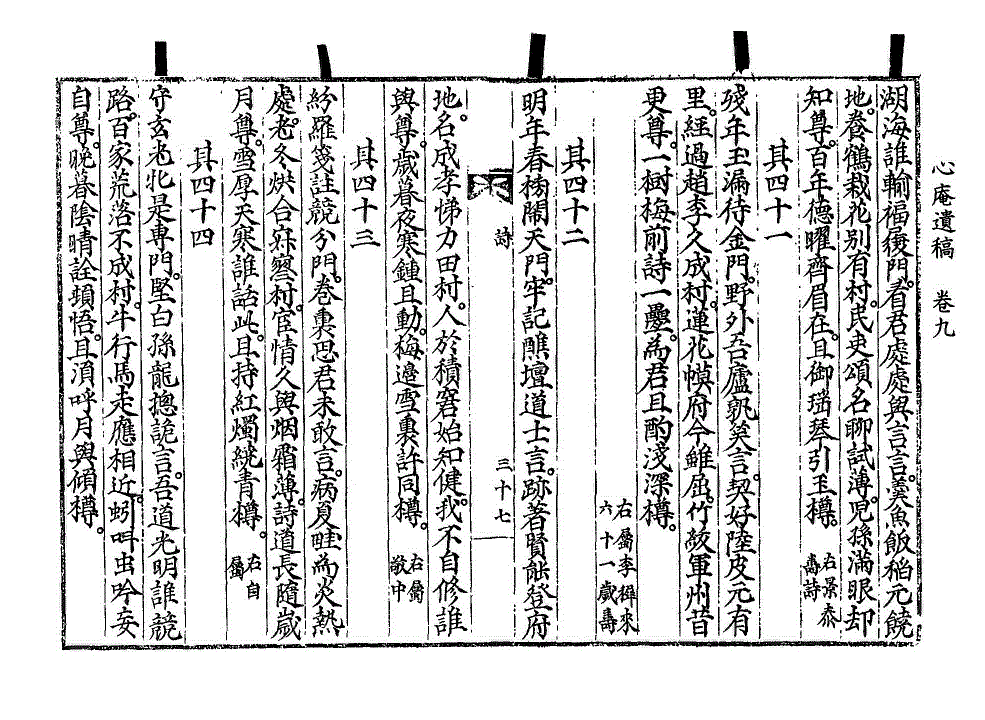 心庵遺稿 卷九
湖海誰輸福獲門看君處處與言言羹魚飯稻元饒
地養鶴栽花別有村民吏頌名聊試薄兒孫滿眼却
知尊百年德曜齊眉在且御瑤琴引玉樽 右景泰壽詩
其四十一
殘年玉漏待金門野外吾廬孰笑言契好陸皮元有
里經過趙李久成村蓮花幙府今雖屈竹紋軍州昔
更尊一樹梅前詩一疊爲君且酌淺深樽 右屬李穉來六十一歲壽
其四十二
明年春榜闢天門牢記醮壇道士言跡著賢能登府
詩 三十七
地名成孝悌力田村人於積窘始知健我不自修誰
與尊歲暮夜寒鍾且動梅邊雪裏許同樽 右屬敬中
其四十三
紛羅箋註競分門卷裏思君未敢言病夏畦而炎熱
處老冬烘合寂寥村宦情久與烟霜薄詩道長隨歲
月尊雪厚天寒誰話此且持紅燭繞青樽 右自屬
其四十四
守玄老牝是專門堅白孫龍摠詭言吾道光明誰競
路百家荒落不成村牛行馬走應相近蚓叫虫吟妄
自尊晚暮陰晴詮頓悟且須呼月與傾樽